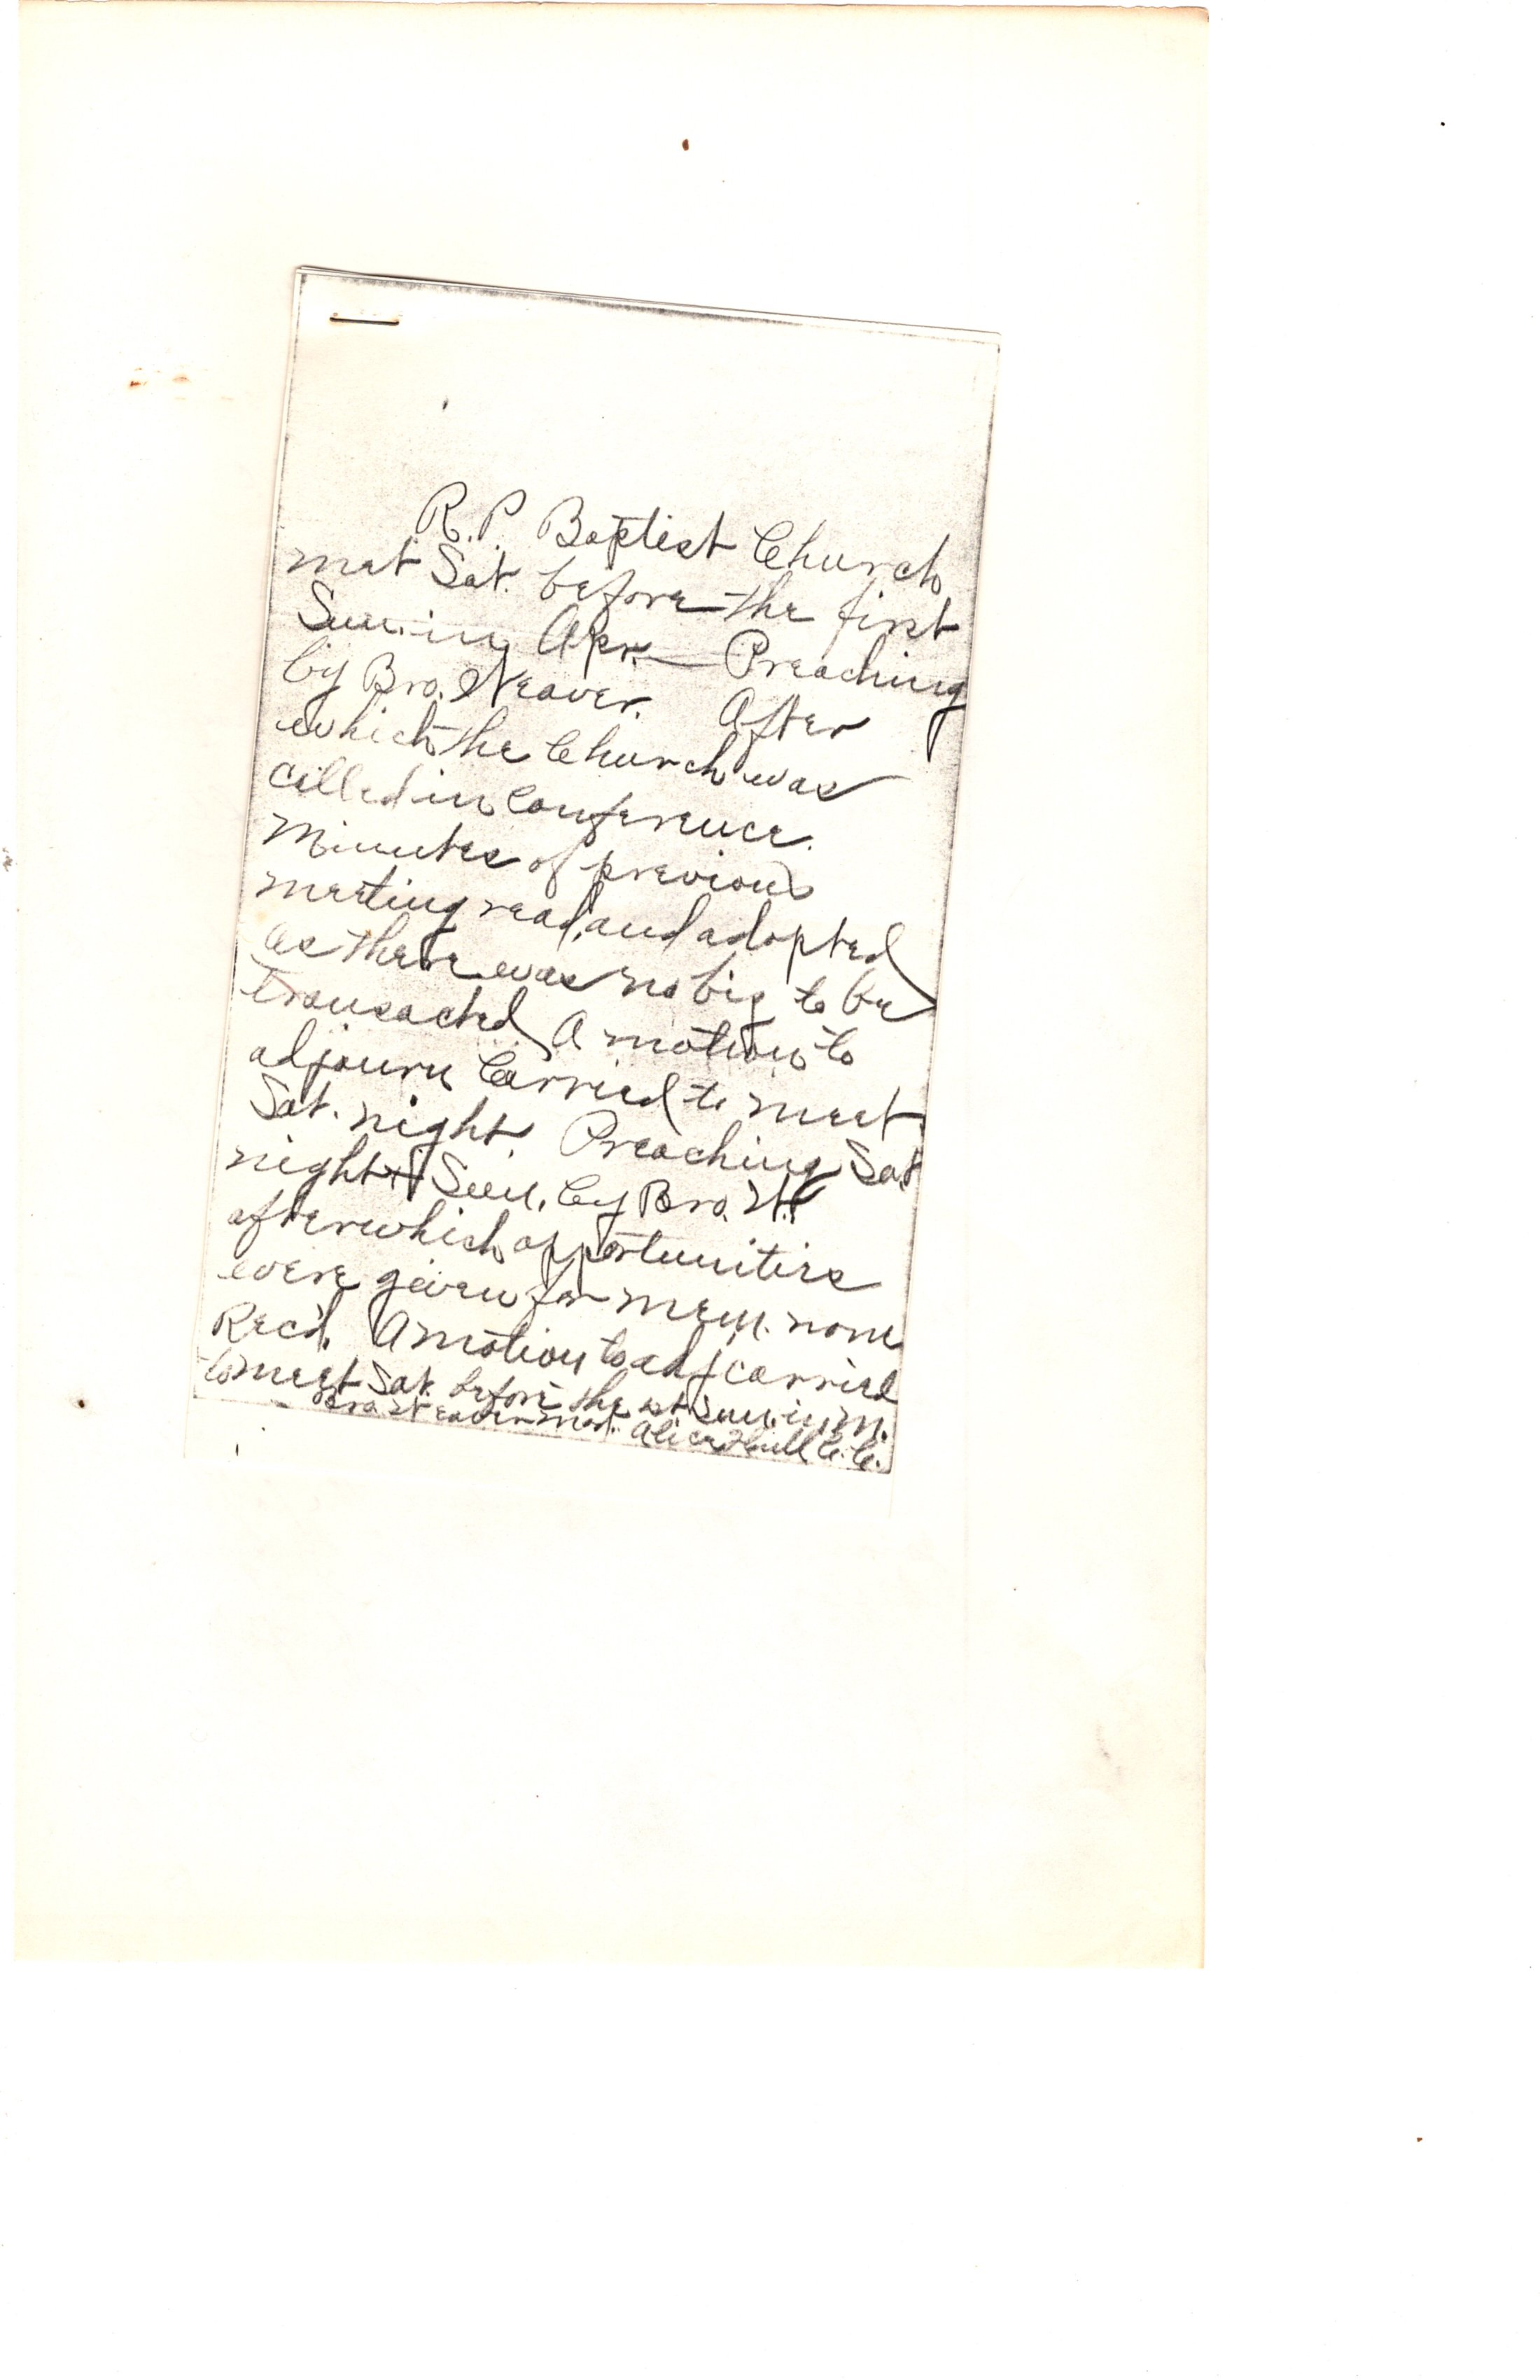 R. P. Baptist Church
met Sat. before the first
Sun. in Apr. — Preaching
by Bro. Weaver. After
which the Church was
called in Conference.
Minutes of previous
meeting read, and adopted
as there was no biz to be
transacted A motion to
adjourn Carried to meet
Sat. night. Preaching Sat
night & Sun. by Bro. W.
after which opportunities
were given for mem. none
Rec'd. A motion to adj carried
to meet Sat. before the 1st Sun. in M.
Bro Weaver Mod. Alice C. C.